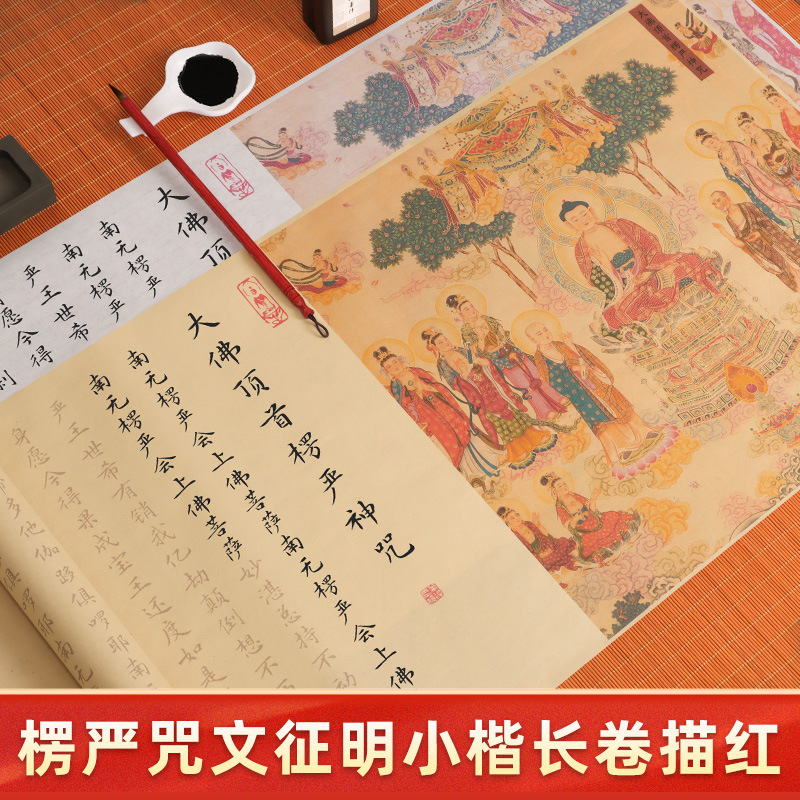 大佛顶
南无楞严
南无楞严
严王世希
愿今得
刹
大佛顶首楞严神咒
南无楞严会上佛菩萨南无楞严会上佛
南无楞严会上佛菩萨妙湛总持不动
严王世希有销我亿劫颠倒想不
身愿今得果成宝王还度如是
多他伽跢俱啰耶南
俱啰耶南无
楞严咒文征明小楷长卷描红